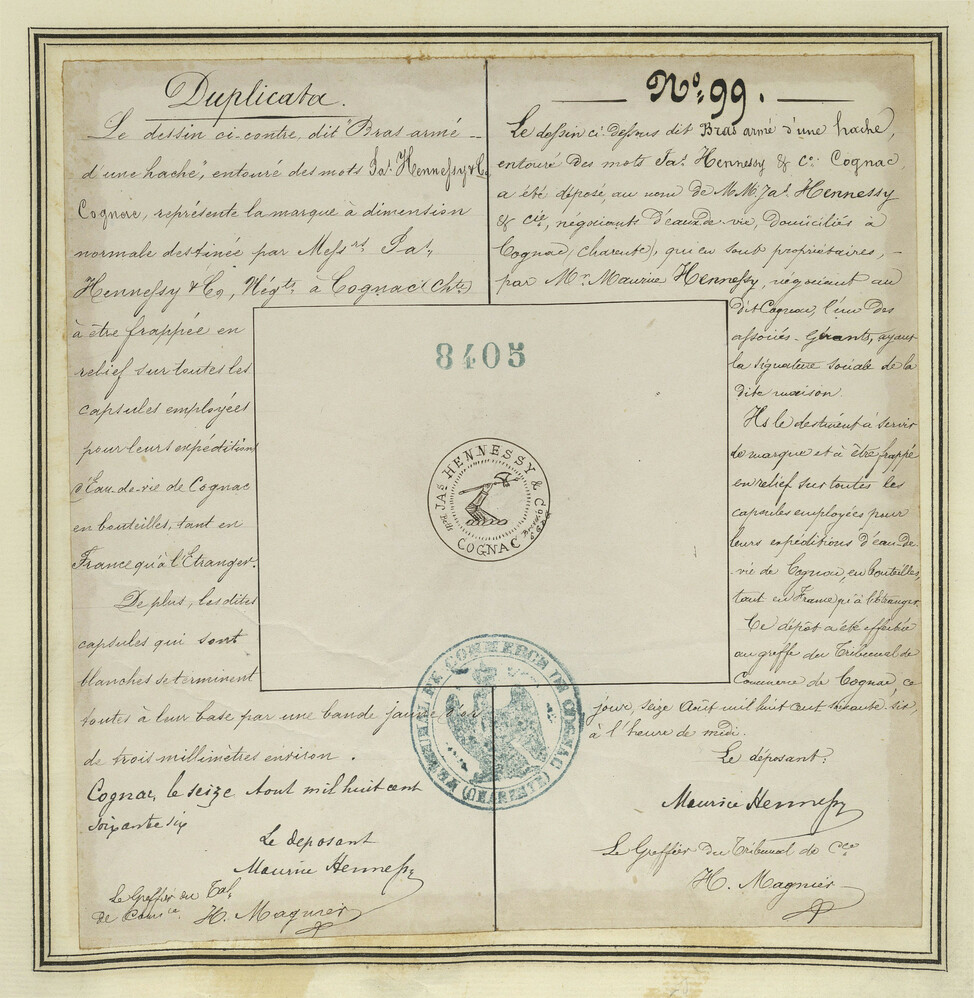 Duplicata.
Le dessin ci-contre, dit "Bras armé
d'une hache", entouré des mots Jas. Hennessy & Co
Cognac, représente la marque à dimension
normale destinée par Messrs. Jas.
Hennessy & Co, Négts. à Cognac (Chte)
à être frappée en
relief sur toutes les
capsules employées
pour leurs expéditions
d'Eau-de-vie de Cognac
en bouteilles, tant en
France qu'à l'Etranger.
De plus, les dites
capsules qui sont
blanches se terminent
toutes à leur base par une bande jaune d'or
de trois millimètres environ.
Cognac, le seize Aout mil huit cent
soixante six
Le deposant
Maurice Hennessy
Le Greffier du Tal.
de Comce. H. Magnier
No. 99.
Le dessin ci-dessus dit Bras armé d'une hache,
entouré des mots Jas. Hennessy & Co. Cognac
a été déposé, au nom de MM. Jas. Hennessy
& Cie, négociants d'eaux de vie, domiciliés à
Cognac (Charente), qui en sont propriétaires,
par Mr. Maurice Hennessy, négociant au
dit Cognac, l'un des
associés-Gérants, ayant
la signature sociale de la
dite maison.
Ils le destinent à servir
de marque et à être frappé
en relief sur toutes les
capsules employées pour
leurs expéditions d'eau-de-
vie de Cognac, en bouteilles,
tant en France qu'à l'étranger.
Ce dépôt a été effectué
au greffe du Tribunal de
Commerce de Cognac, ce
jour, seize Août mil huit cent soixante six,
à l'heure de midi.
Le déposant:
Maurice Hennessy
Le Greffier du Tribunal de Cce
H. Magnier
8405
JAS HENNESSY & CO
COGNAC
TRIBUNAL DE COMMERCE DE COGNAC
(CHARENTE)